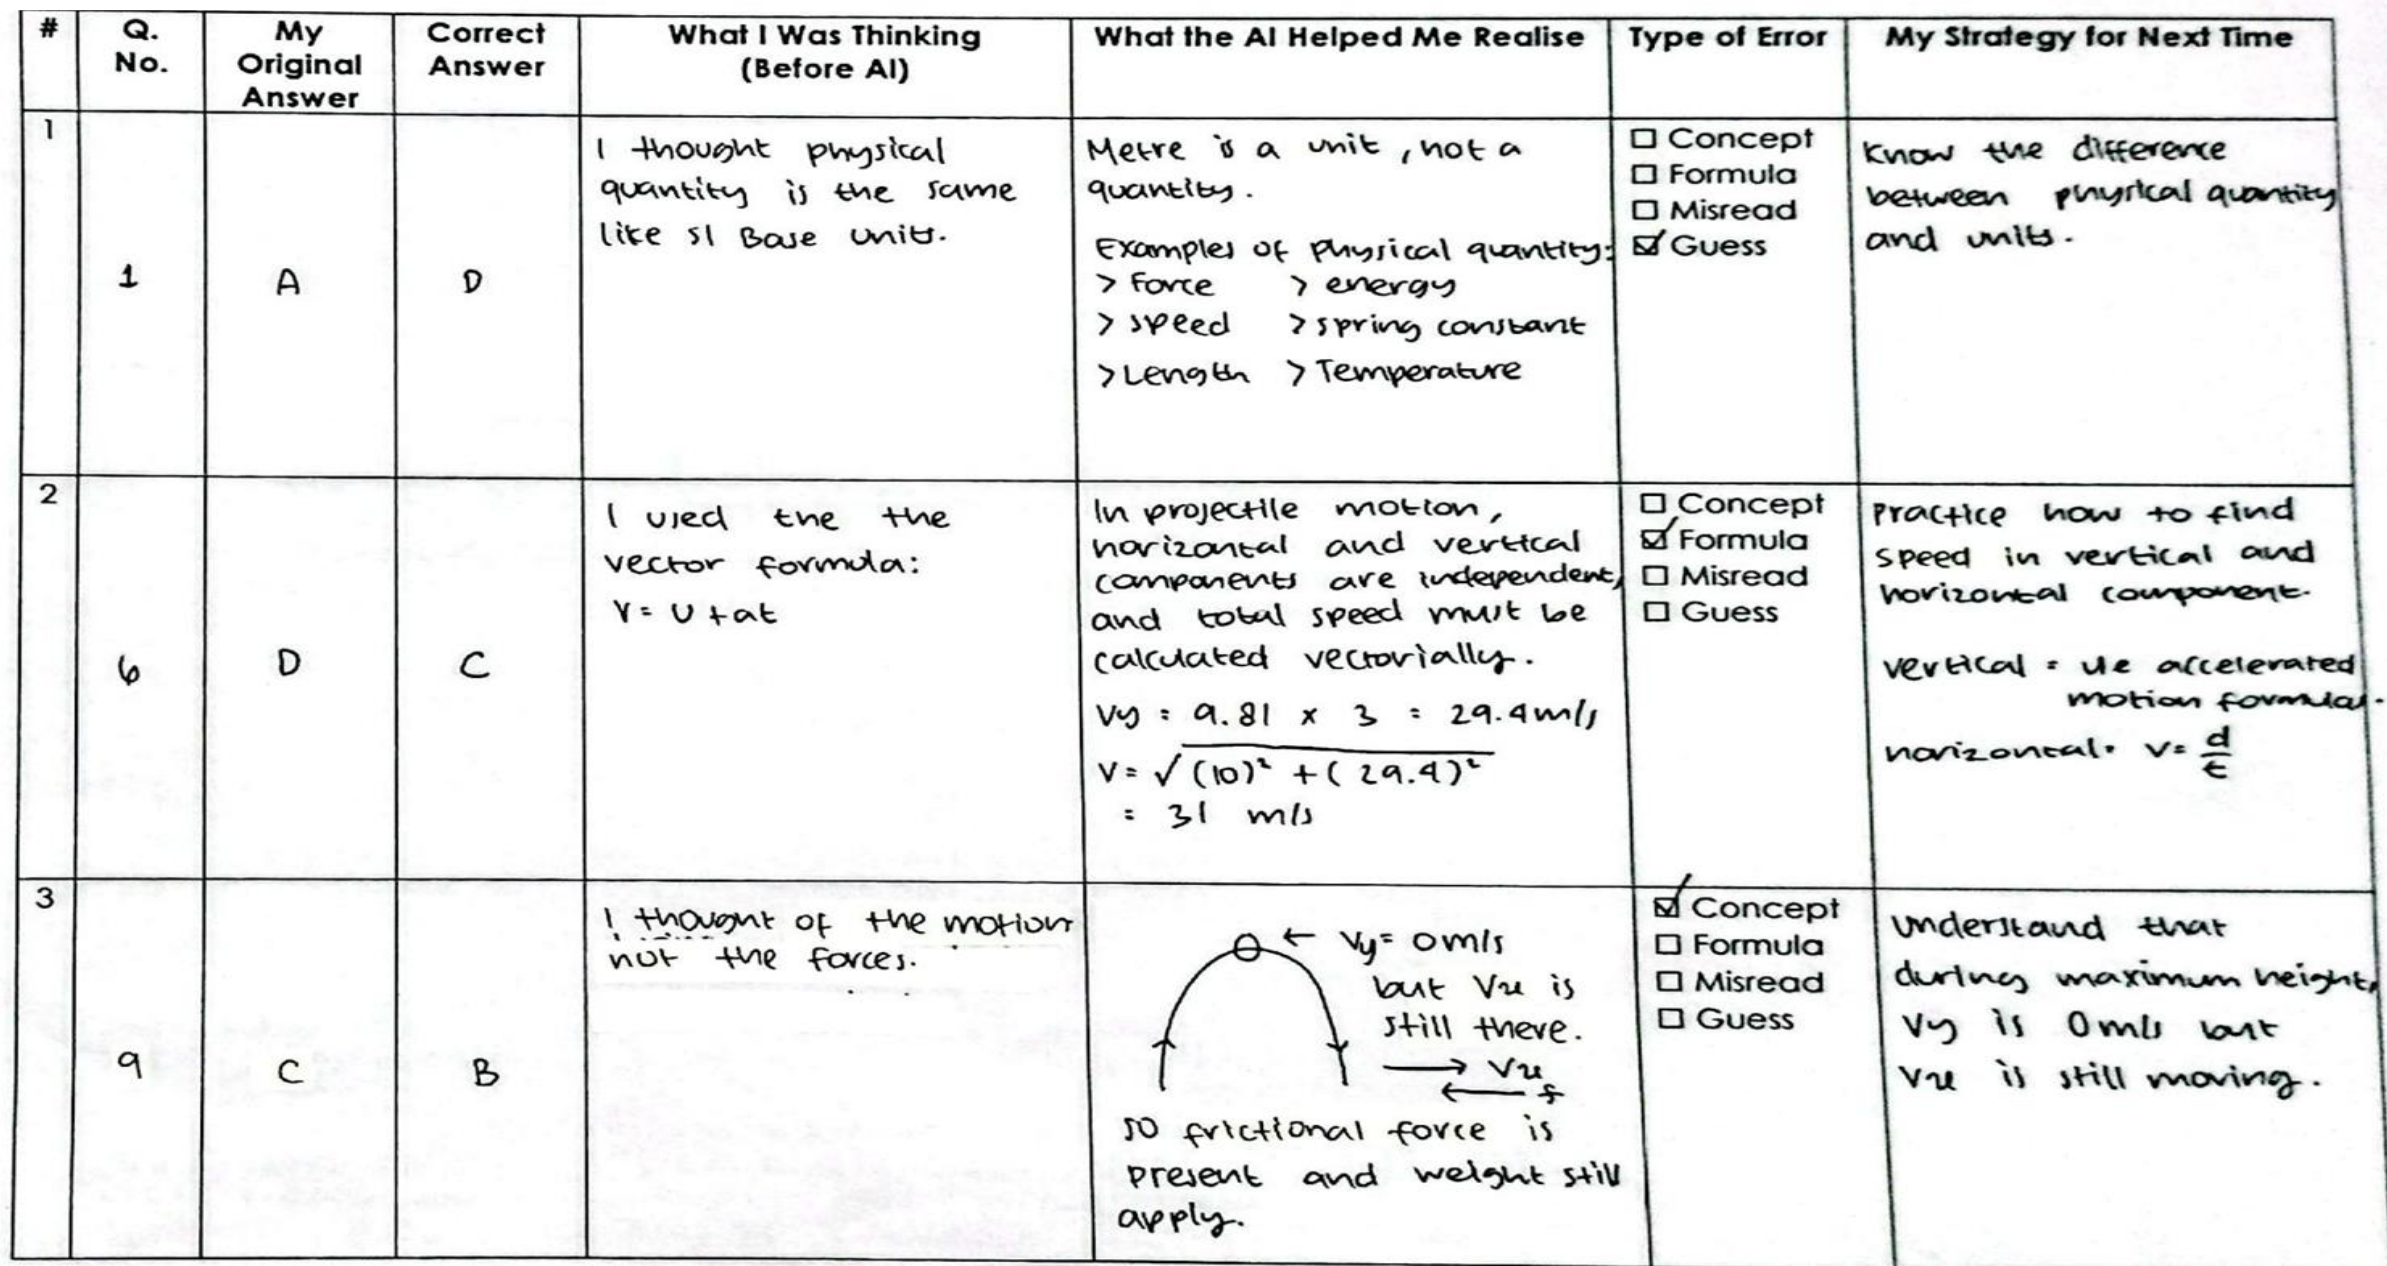 # Q. No. My Original Answer Correct Answer What I Was Thinking (Before AI) What the AI Helped Me Realise Type of Error My Strategy for Next Time
1
1
A
D
I thought physical
quantity is the same
like SI Base units.
Metre is a unit, not a
quantity.
Examples of physical quantity:
> Force > energy
> speed > spring constant
> Length > Temperature
☐ Concept
☐ Formula
☐ Misread
☑ Guess
Know the difference
between physical quantity
and units.
2
6
D
C
I used the the
vector formula:
V = U + at
In projectile motion,
horizontal and vertical
components are independent,
and total speed must be
calculated vectorially.
Vy = 9.81 x 3 = 29.4 m/s
V = √(10)² + (29.4)²
= 31 m/s
☐ Concept
☑ Formula
☐ Misread
☐ Guess
Practice how to find
speed in vertical and
horizontal component.
vertical = use accelerated
motion formulas.
horizontal = V = d/t
3
9
C
B
I thought of the motion
not the forces.
← Vy = 0 m/s
but Vx is
still there.
→ Vx
← f
so frictional force is
present and weight still
apply.
☑ Concept
☐ Formula
☐ Misread
☐ Guess
Understand that
during maximum height,
Vy is 0 m/s but
Vx is still moving.